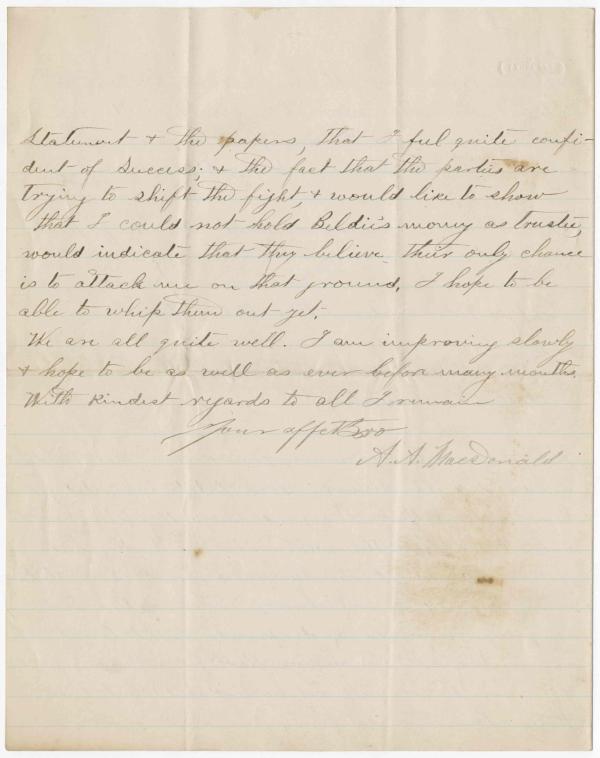 Statement & the papers, that I feel quite confi-
dent of success; & the fact that the parties are
trying to shift the fight, & would like to show
that I could not hold Beldii's money as trustee,
would indicate that they believe their only chance
is to attack me on that ground. I hope to be
able to whip them out yet.
We are all quite well. I am improving slowly
& hope to be as well as ever before many months.
With kindest regards to all I remain
Your affet Bro
A. A. MacDonald